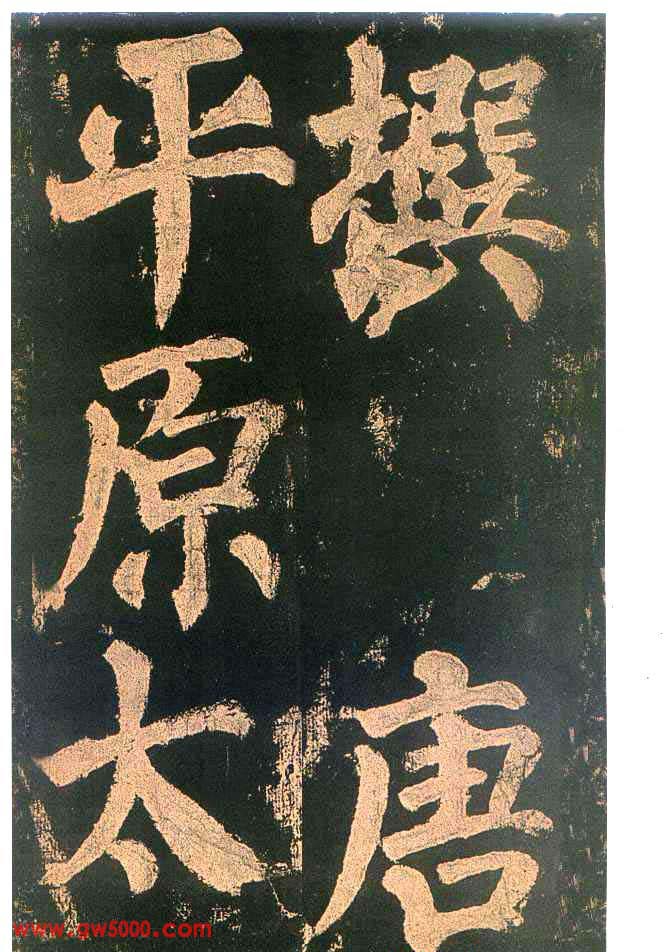 撰唐
平原太
www.gw5000.com